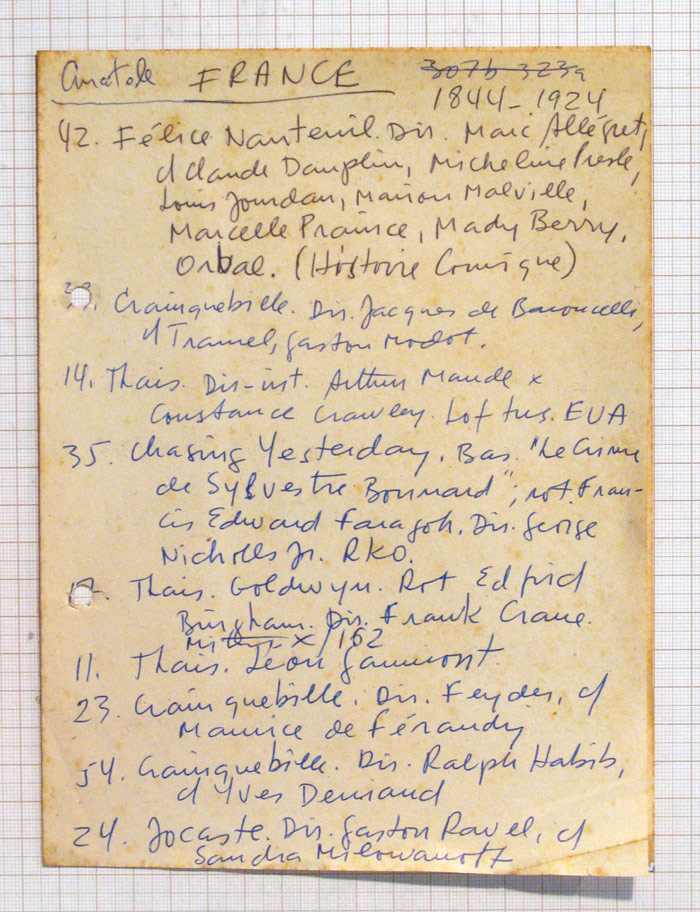 Anatole FRANCE 307b 323a
1844-1924
42. Félice Nanteuil. Dir. Marc Allégret,
c/ Claude Dauphin, Micheline Presle,
Louis Jourdan, Marion Malville,
Marcelle Praince, Mady Berry,
Orbal. (Histoire Comique)
33. Crainquebille. Dir. Jacques de Baroncelli,
c/ Tramel, Gaston Modot.
14. Thais. Dir-int. Arthur Maude x
Constance Crawley. Loftus. EUA
35. Chasing Yesterday. Bas. "Le Crime
de Sylvestre Bonnard"; rot. Fran-
cis Edward Faragoh. Dir. George
Nicholls Jr. RKO.
17. Thais. Goldwyn. Rot Edfrid
Bingham. Dir. Frank Crane.
x/162
11. Thais. Léon Gaumont.
23. Crainquebille. Dir. Feyder, c/
Maurice de Féraudy
54. Crainquebille. Dir. Ralph Habib,
c/ Yves Deniaud
24. Jocaste. Dir. Gaston Ravel, c/
Sandra Milowanoff